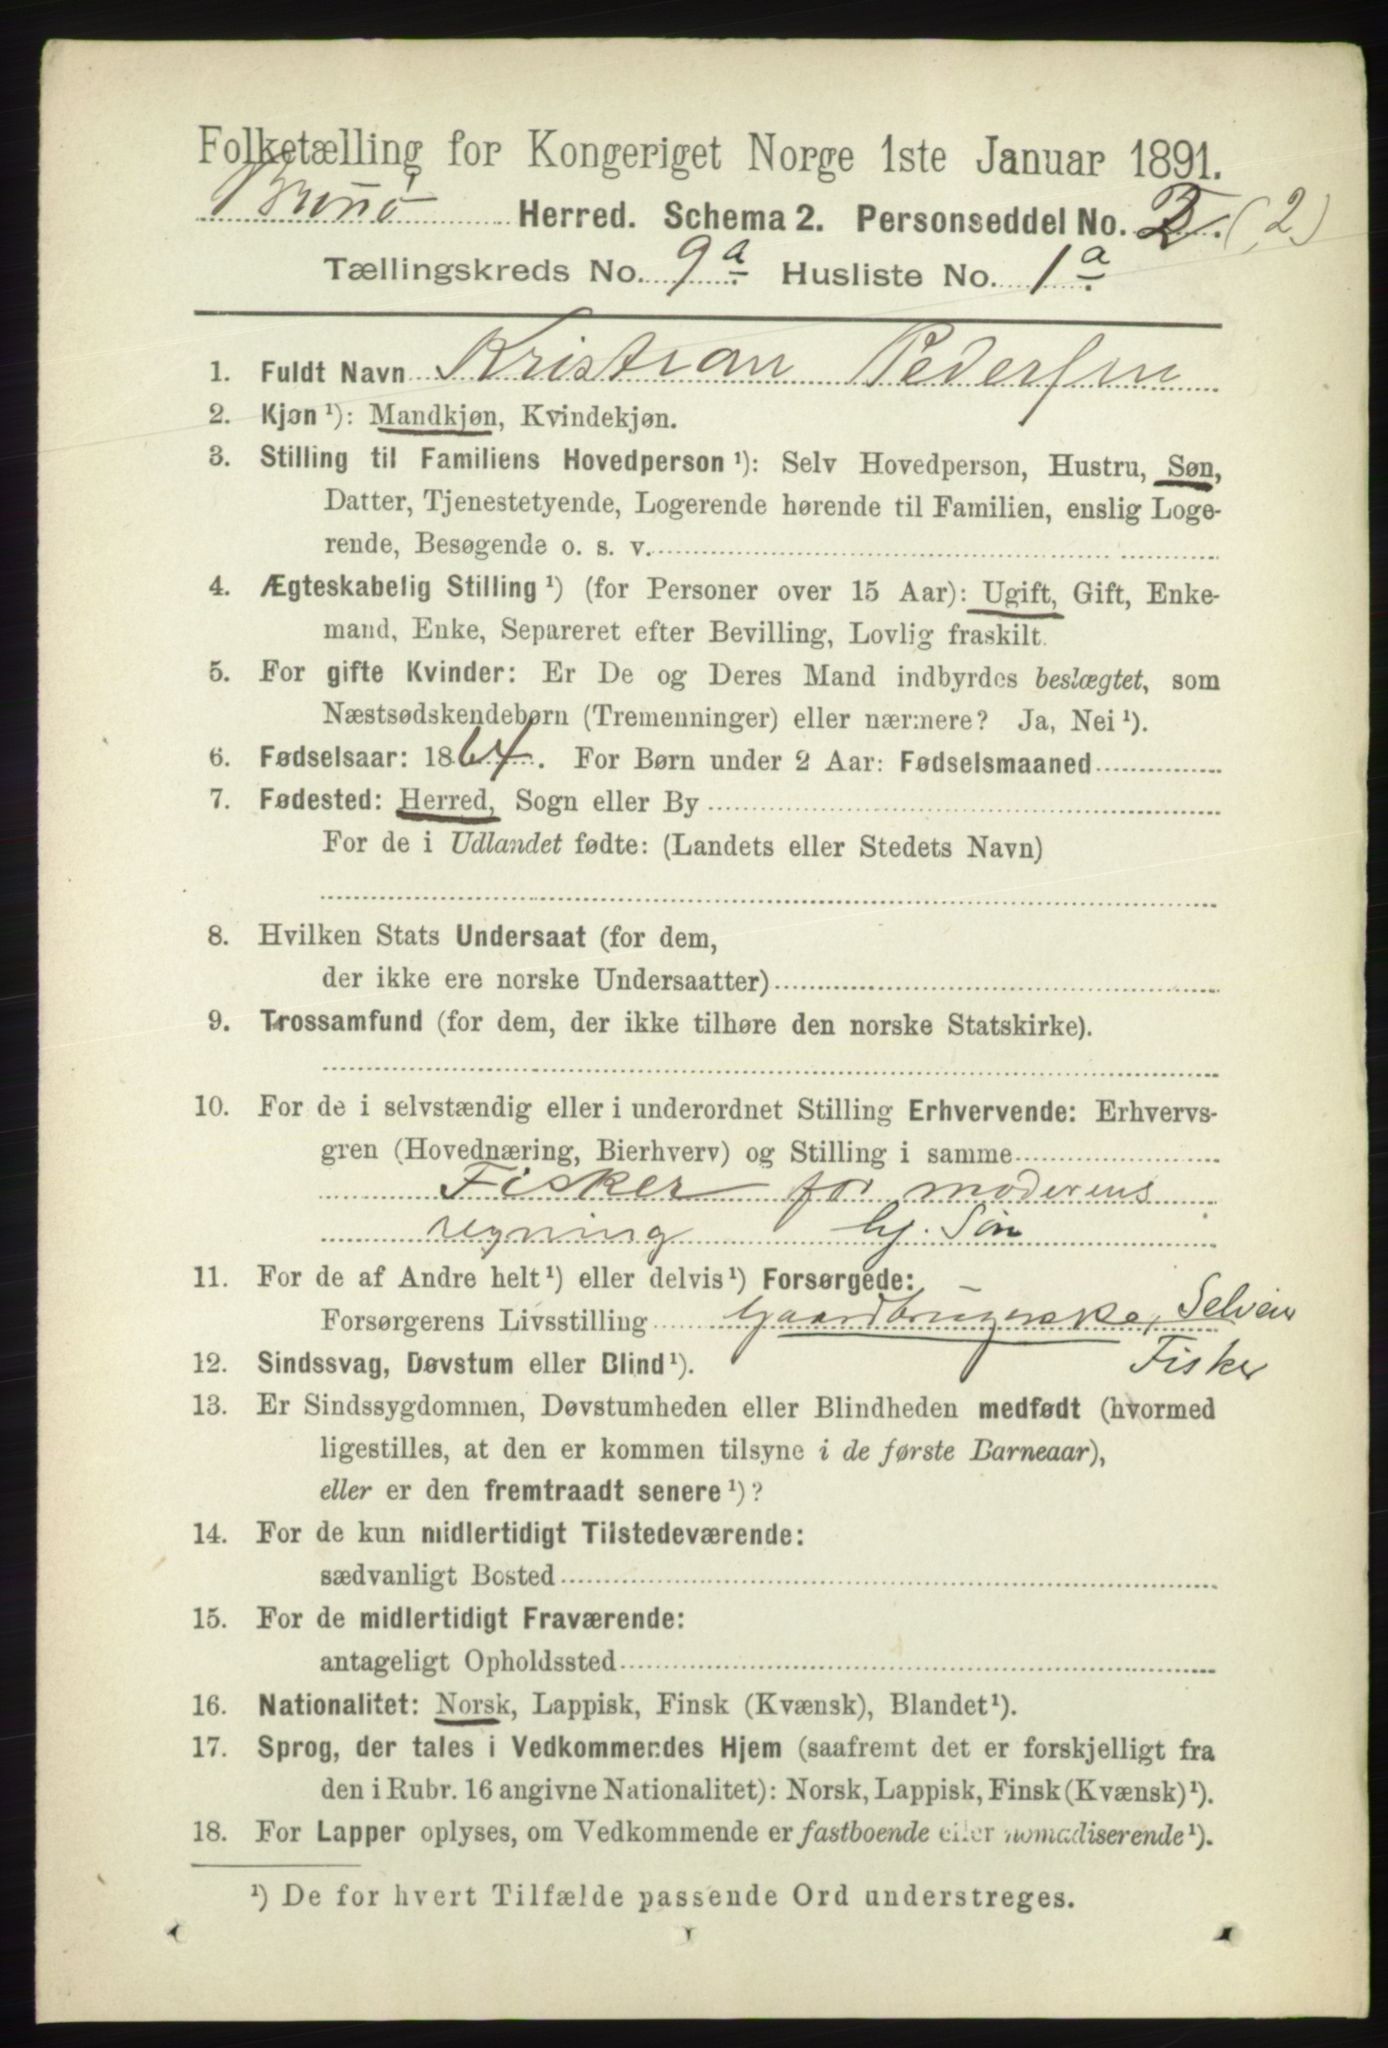 Folketælling for Kongeriget Norge 1ste Januar 1891.
Herred. Schema 2. Personseddel No. 2. (2)
Tællingskreds No. 9a. Husliste No. 1a.
1. Fuldt Navn Kristian Pedersen
2. Kjøn¹): Mandkjøn, Kvindekjøn.
3. Stilling til Familiens Hovedperson¹): Selv Hovedperson, Hustru, Søn,
Datter, Tjenestetyende, Logerende hørende til Familien, enslig Loge-
rende, Besøgende o. s. v.
4. Ægteskabelig Stilling¹) (for Personer over 15 Aar): Ugift, Gift, Enke-
mand, Enke, Separeret efter Bevilling, Lovlig fraskilt.
5. For gifte Kvinder: Er De og Deres Mand indbyrdes beslægtet, som
Næstsødskendebørn (Tremenninger) eller nærmere? Ja, Nei¹).
6. Fødselsaar: 1864. For Børn under 2 Aar: Fødselsmaaned
7. Fødested: Herred, Sogn eller By
For de i Udlandet fødte: (Landets eller Stedets Navn)
8. Hvilken Stats Undersaat (for dem,
der ikke ere norske Undersaatter)
9. Trossamfund (for dem, der ikke tilhøre den norske Statskirke).
10. For de i selvstændig eller i underordnet Stilling Erhvervende: Erhvervs-
gren (Hovednæring, Bierhverv) og Stilling i samme
Fisker for moderens
regning hj. Søn
11. For de af Andre helt¹) eller delvis¹) Forsørgede:
Forsørgerens Livsstilling Gaardbrugerske, Selveier
Fisker
12. Sindssvag, Døvstum eller Blind¹).
13. Er Sindssygdommen, Døvstumheden eller Blindheden medfødt (hvormed
ligestilles, at den er kommen tilsyne i de første Barneaar),
eller er den fremtraadt senere¹)?
14. For de kun midlertidigt Tilstedeværende:
sædvanligt Bosted
15. For de midlertidigt Fraværende:
antageligt Opholdssted
16. Nationalitet: Norsk, Lappisk, Finsk (Kvænsk), Blandet¹).
17. Sprog, der tales i Vedkommendes Hjem (saafremt det er forskjelligt fra
den i Rubr. 16 angivne Nationalitet): Norsk, Lappisk, Finsk (Kvænsk)¹).
18. For Lapper oplyses, om Vedkommende er fastboende eller nomadiserende¹).
¹) De for hvert Tilfælde passende Ord understreges.